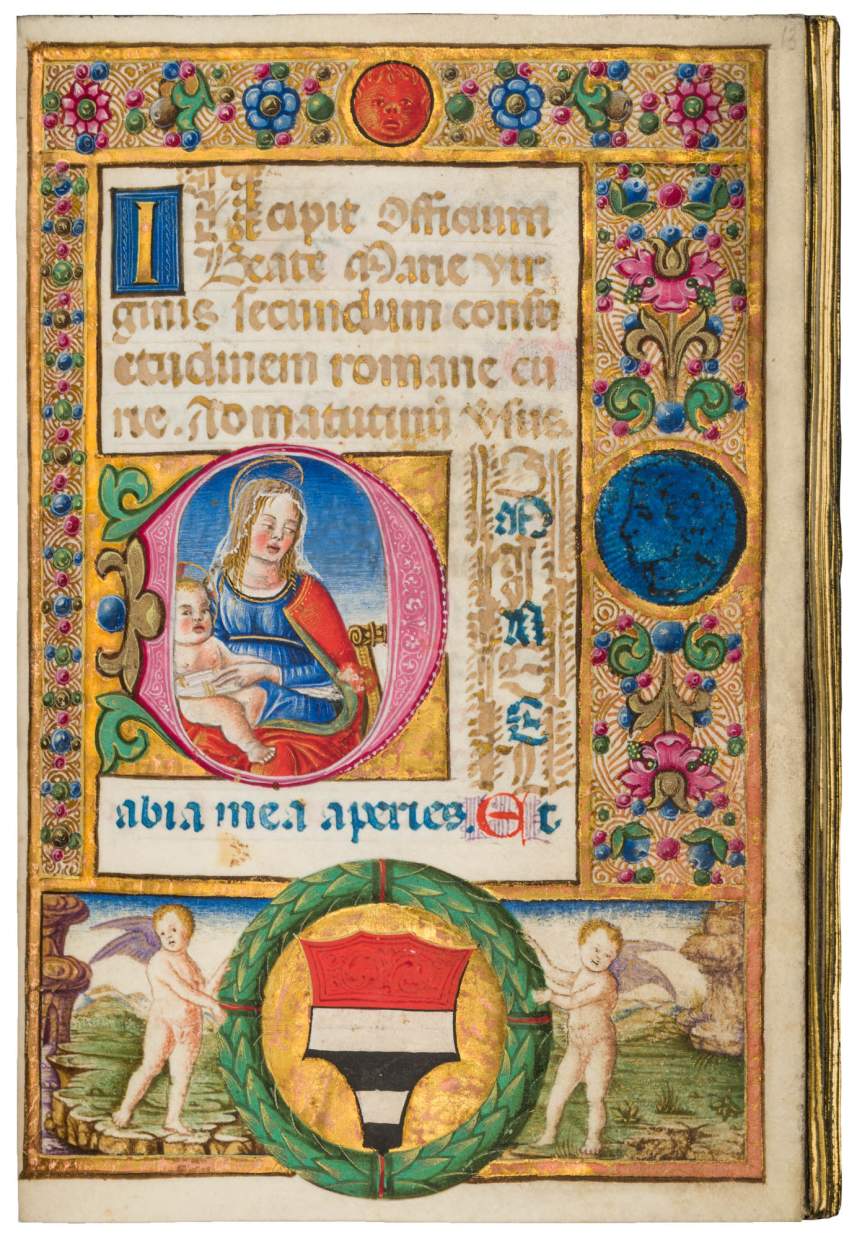 13
Incipit Officium
Beate Marie vir
ginis secundum consu
etudinem romane cu
rie. Ad matutinū Vsus.
DOMINE L
abia mea aperies. Et